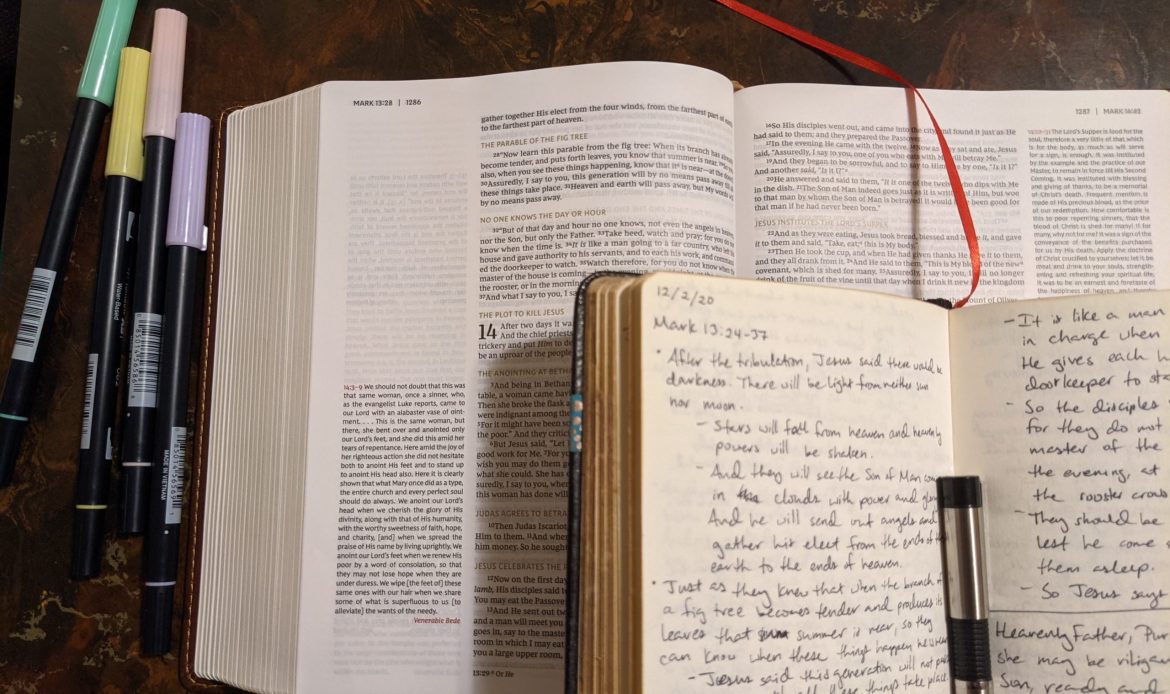 MARK 13:28 | 1286
gather together His elect from the four winds, from the farthest part of
to the farthest part of heaven.
THE PARABLE OF THE FIG TREE
28"Now learn this parable from the fig tree: When its branch has already
become tender, and puts forth leaves, you know that summer is near. 29So you
also, when you see these things happening, know that it is near—at the
30Assuredly, I say to you, this generation will by no means pass away till
these things take place. 31Heaven and earth will pass away, but My words
by no means pass away.
NO ONE KNOWS THE DAY OR HOUR
32"But of that day and hour no one knows, not even the angels in
nor the Son, but only the Father. 33Take heed, watch and pray; for you do
know when the time is. 34It is like a man going to a far country, who left
house and gave authority to his servants, and to each his work, and
ed the doorkeeper to watch. 35Watch therefore, for you do not know when
master of the house is coming
the rooster, or in the morning
37And what I say to you, I
THE PLOT TO KILL JESUS
14 After two days it wa
And the chief priests
trickery and put Him to de
be an uproar of the people
THE ANOINTING AT BETHA
3And being in Bethan
table, a woman came havi
Then she broke the flask a
were indignant among the
5For it might have been so
the poor." And they critici
6But Jesus said, "Let
good work for Me. 7For yo
wish you may do them go
what she could. She has
suredly, I say to you, whe
this woman has done will
JUDAS AGREES TO BETRA
10Then Judas Iscariot
Him to them. 11And when
him money. So he sought
JESUS CELEBRATES THE
12Now on the first day
lamb, His disciples said t
You may eat the Passove
13And He sent out tw
and a man will meet you
goes in, say to the maste
room in which I may eat
you a large upper room,
13:29 a Or He
14:3–9 We should not doubt that this was
that same woman, once a sinner, who,
as the evangelist Luke reports, came to
our Lord with an alabaster vase of oint-
ment. . . . This is the same woman, but
there, she bent over and anointed only
our Lord's feet, and she did this amid her
tears of repentance. Here amid the joy of
her righteous action she did not hesitate
both to anoint His feet and to stand up
to anoint His head also. Here it is clearly
shown that what Mary once did as a type,
the entire church and every perfect soul
should do always. We anoint our Lord's
head when we cherish the glory of His
divinity, along with that of His humanity,
with the worthy sweetness of faith, hope,
and charity, [and] when we spread the
praise of His name by living uprightly. We
anoint our Lord's feet when we renew His
poor by a word of consolation, so that
they may not lose hope when they are
under duress. We wipe [the feet of] these
same ones with our hair when we share
some of what is superfluous to us [to
alleviate] the wants of the needy.
Venerable Bede
1287 | MARK 14:42
16So His disciples went out, and came into the city, and found it just as He
had said to them; and they prepared the Passover.
17In the evening He came with the twelve. 18Now as they sat and ate, Jesus
said, "Assuredly, I say to you, one of you who eats with Me will betray Me."
19And they began to be sorrowful, and to say to Him one by one, "Is it I?"
And another said, "Is it I?"
20He answered and said to them, "It is one of the twelve, who dips with Me
in the dish. 21The Son of Man indeed goes just as it is written of Him, but woe
to that man by whom the Son of Man is betrayed! It would have been good for
that man if he had never been born."
JESUS INSTITUTES THE LORD'S SUPPER
22And as they were eating, Jesus took bread, blessed and broke it, and gave
it to them and said, "Take, eat; this is My body."
23Then He took the cup, and when He had given thanks He gave it to them,
and they all drank from it. 24And He said to them, "This is My blood of the new
covenant, which is shed for many. 25Assuredly, I say to you, I will no longer
drink of the fruit of the vine until that day when I drink it new in the kingdom
Mount of Olives
The Lord's Supper is food for the
soul, therefore a very little of that which
is for the body, as much as will serve
for a sign, is enough. It was instituted
by the example and the practice of our
Master, to remain in force till His Second
Coming. It was instituted with blessing
and giving of thanks, to be a memorial
of Christ's death. Frequent mention is
made of His precious blood, as the price
of our redemption. How comfortable is
this to poor repenting sinners, that the
blood of Christ is shed for many! If for
many, why not for me? It was a sign of the
conveyance of the benefits purchased
for us by His death. Apply the doctrine
of Christ crucified to yourselves; let it be
meat and drink to your souls, strength-
ening and refreshing your spiritual life.
It was to be an earnest and foretaste of
the happiness of heaven, and thereby
12/2/20
Mark 13:24-37
• After the tribulation, Jesus said there would be
darkness. There will be light from neither sun
nor moon.
– Stars will fall from heaven and heavenly
powers will be shaken.
– And they will see the Son of Man com
in the clouds with power and glory
And he will send out angels and
gather his elect from the ends of the
earth to the ends of heaven.
• Just as they know that when the branch of
a fig tree becomes tender and produces its
leaves that summer is near, so they
can know when these things happen he is near
– Jesus said this generation will not pass
all these things take place.
– It is like a man
in charge when
He gives each h
doorkeeper to sta
– So the disciples
for they do not
master of the
the evening, at
the rooster crow
– They should be
lest he come
them asleep.
– So Jesus says
Heavenly Father, Pur
she may be vigilan
Son, ready and
Water-Based
MADE IN VIETNAM